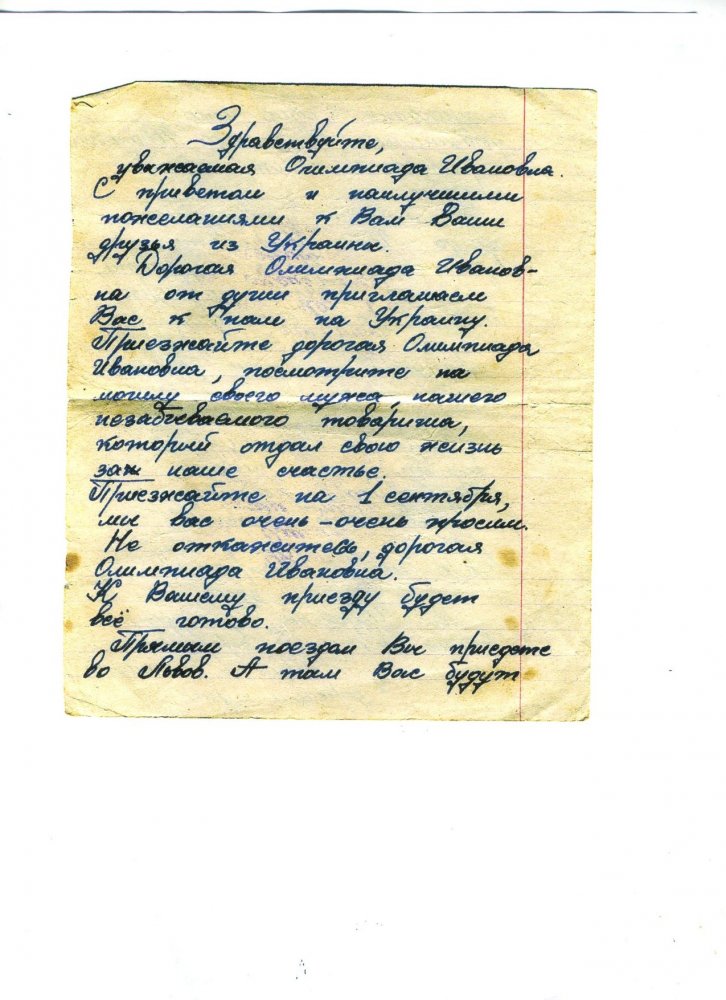 Здравствуйте,
уважаемая Олимпиада Ивановна.
С приветом и наилучшими
пожеланиями к Вам Ваши
друзья из Украины.
Дорогая Олимпиада Иванов-
на от души приглашаем
Вас к нам на Украину.
Приезжайте дорогая Олимпиада
Ивановна, посмотрите на
могилу своего мужа, нашего
незабываемого товарища,
который отдал свою жизнь
за наше счастье.
Приезжайте на 1 сентября,
мы вас очень-очень просим.
Не откажитесь, дорогая
Олимпиада Ивановна.
К Вашему приезду будет
всё готово.
Прямым поездом Вы приедете
во Львов. А там Вас будут